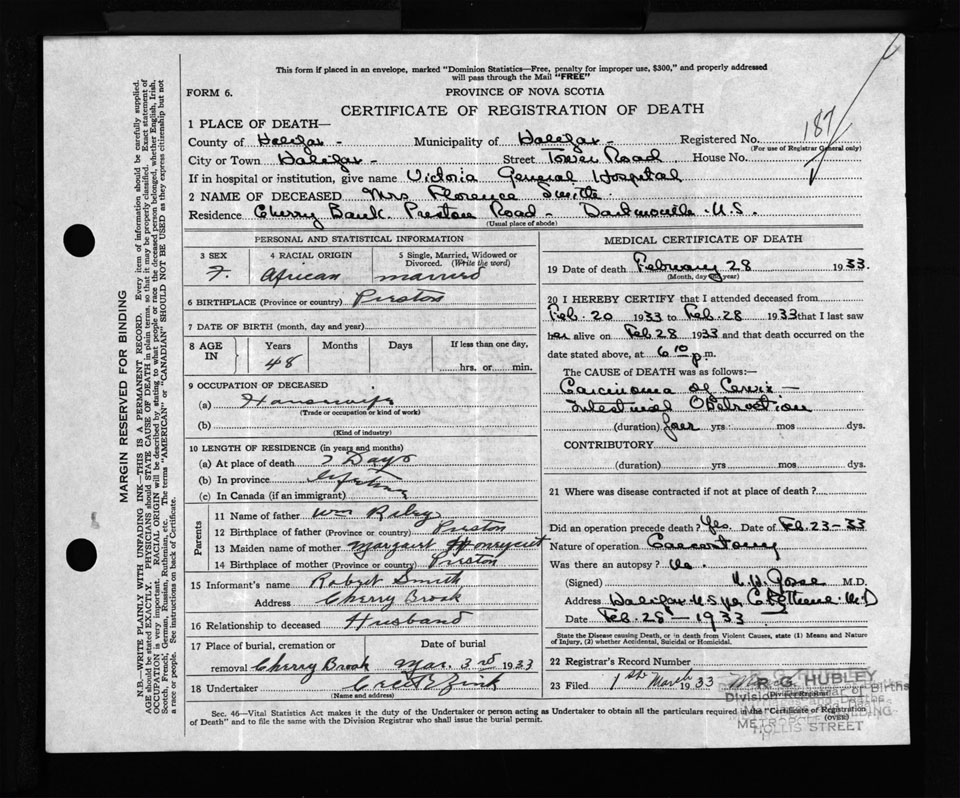 This form if placed in an envelope, marked "Dominion Statistics—Free, penalty for improper use, $300," and properly addressed
will pass through the Mail "FREE"
FORM 6.
PROVINCE OF NOVA SCOTIA
CERTIFICATE OF REGISTRATION OF DEATH
187
1 PLACE OF DEATH—
County of Halifax - Municipality of Halifax - Registered No.
(For use of Registrar General only)
City or Town Halifax - Street Tower Road House No.
If in hospital or institution, give name Victoria General Hospital
2 NAME OF DECEASED Mrs. Florence Smith
Residence Cherry Bank. Preston Road - Dartmouth. N.S.
(Usual place of abode)
PERSONAL AND STATISTICAL INFORMATION
3 SEX 4 RACIAL ORIGIN 5 Single, Married, Widowed or Divorced. (Write the word)
F. African married
6 BIRTHPLACE (Province or country) Preston
7 DATE OF BIRTH (month, day and year)
8 AGE IN Years Months Days If less than one day,
48 hrs. or min.
9 OCCUPATION OF DECEASED
(a) Housewife
(Trade or occupation or kind of work)
(b)
(Kind of industry)
10 LENGTH OF RESIDENCE (in years and months)
(a) At place of death 7 Days
(b) In province Lifetime
(c) In Canada (if an immigrant)
Parents
11 Name of father Wm Riley
12 Birthplace of father (Province or country) Preston
13 Maiden name of mother Margaret
14 Birthplace of mother (Province or country) Preston
15 Informant's name Robert Smith
Address Cherry Brook
16 Relationship to deceased Husband
17 Place of burial, cremation or Date of burial
removal Cherry Brook Mar. 3rd 1933
18 Undertaker Zink
(Name and address)
MEDICAL CERTIFICATE OF DEATH
19 Date of death February 28 1933.
(Month, day and year)
20 I HEREBY CERTIFY that I attended deceased from
Feb. 20 1933 to Feb. 28 1933 that I last saw
her alive on Feb 28 1933 and that death occurred on the
date stated above, at 6 10 p.m.
The CAUSE of DEATH was as follows:—
Carcinoma of Cervix -
Intestinal Obstruction
(duration) four yrs. mos. dys.
CONTRIBUTORY
(duration) yrs mos. dys.
21 Where was disease contracted if not at place of death?
Did an operation precede death? Yes. Date of Feb. 23-33
Nature of operation Caecostomy
Was there an autopsy? No.
(Signed) M.D.
Address Halifax N.S per M.D
Date Feb. 28 - 1933
State the Disease causing Death, or in death from Violent Causes, state (1) Means and Nature
of Injury, (2) whether Accidental, Suicidal or Homicidal.
22 Registrar's Record Number
23 Filed 1st March 1933
R. G. HUBLEY
Division Registrar of Births
HOLLIS STREET
Sec. 46—Vital Statistics Act makes it the duty of the Undertaker or person acting as Undertaker to obtain all the particulars required in the "Certificate of Registration
of Death" and to file the same with the Division Registrar who shall issue the burial permit.
(OVER)
MARGIN RESERVED FOR BINDING
N.B.—WRITE PLAINLY WITH UNFADING INK—THIS IS A PERMANENT RECORD. Every item of information should be carefully supplied.
AGE should be stated EXACTLY. PHYSICIANS should STATE CAUSE OF DEATH in plain terms, so that it may be properly classified. Exact statement of
OCCUPATION is very important. RACIAL ORIGIN will be described by stating to what people or race the deceased person belonged, whether English, Irish,
Scotch, French, German, Russian, Ruthenian, etc. The terms "AMERICAN" or "CANADIAN" SHOULD NOT BE USED as they express citizenship but not
a race or people. See instructions on back of Certificate.